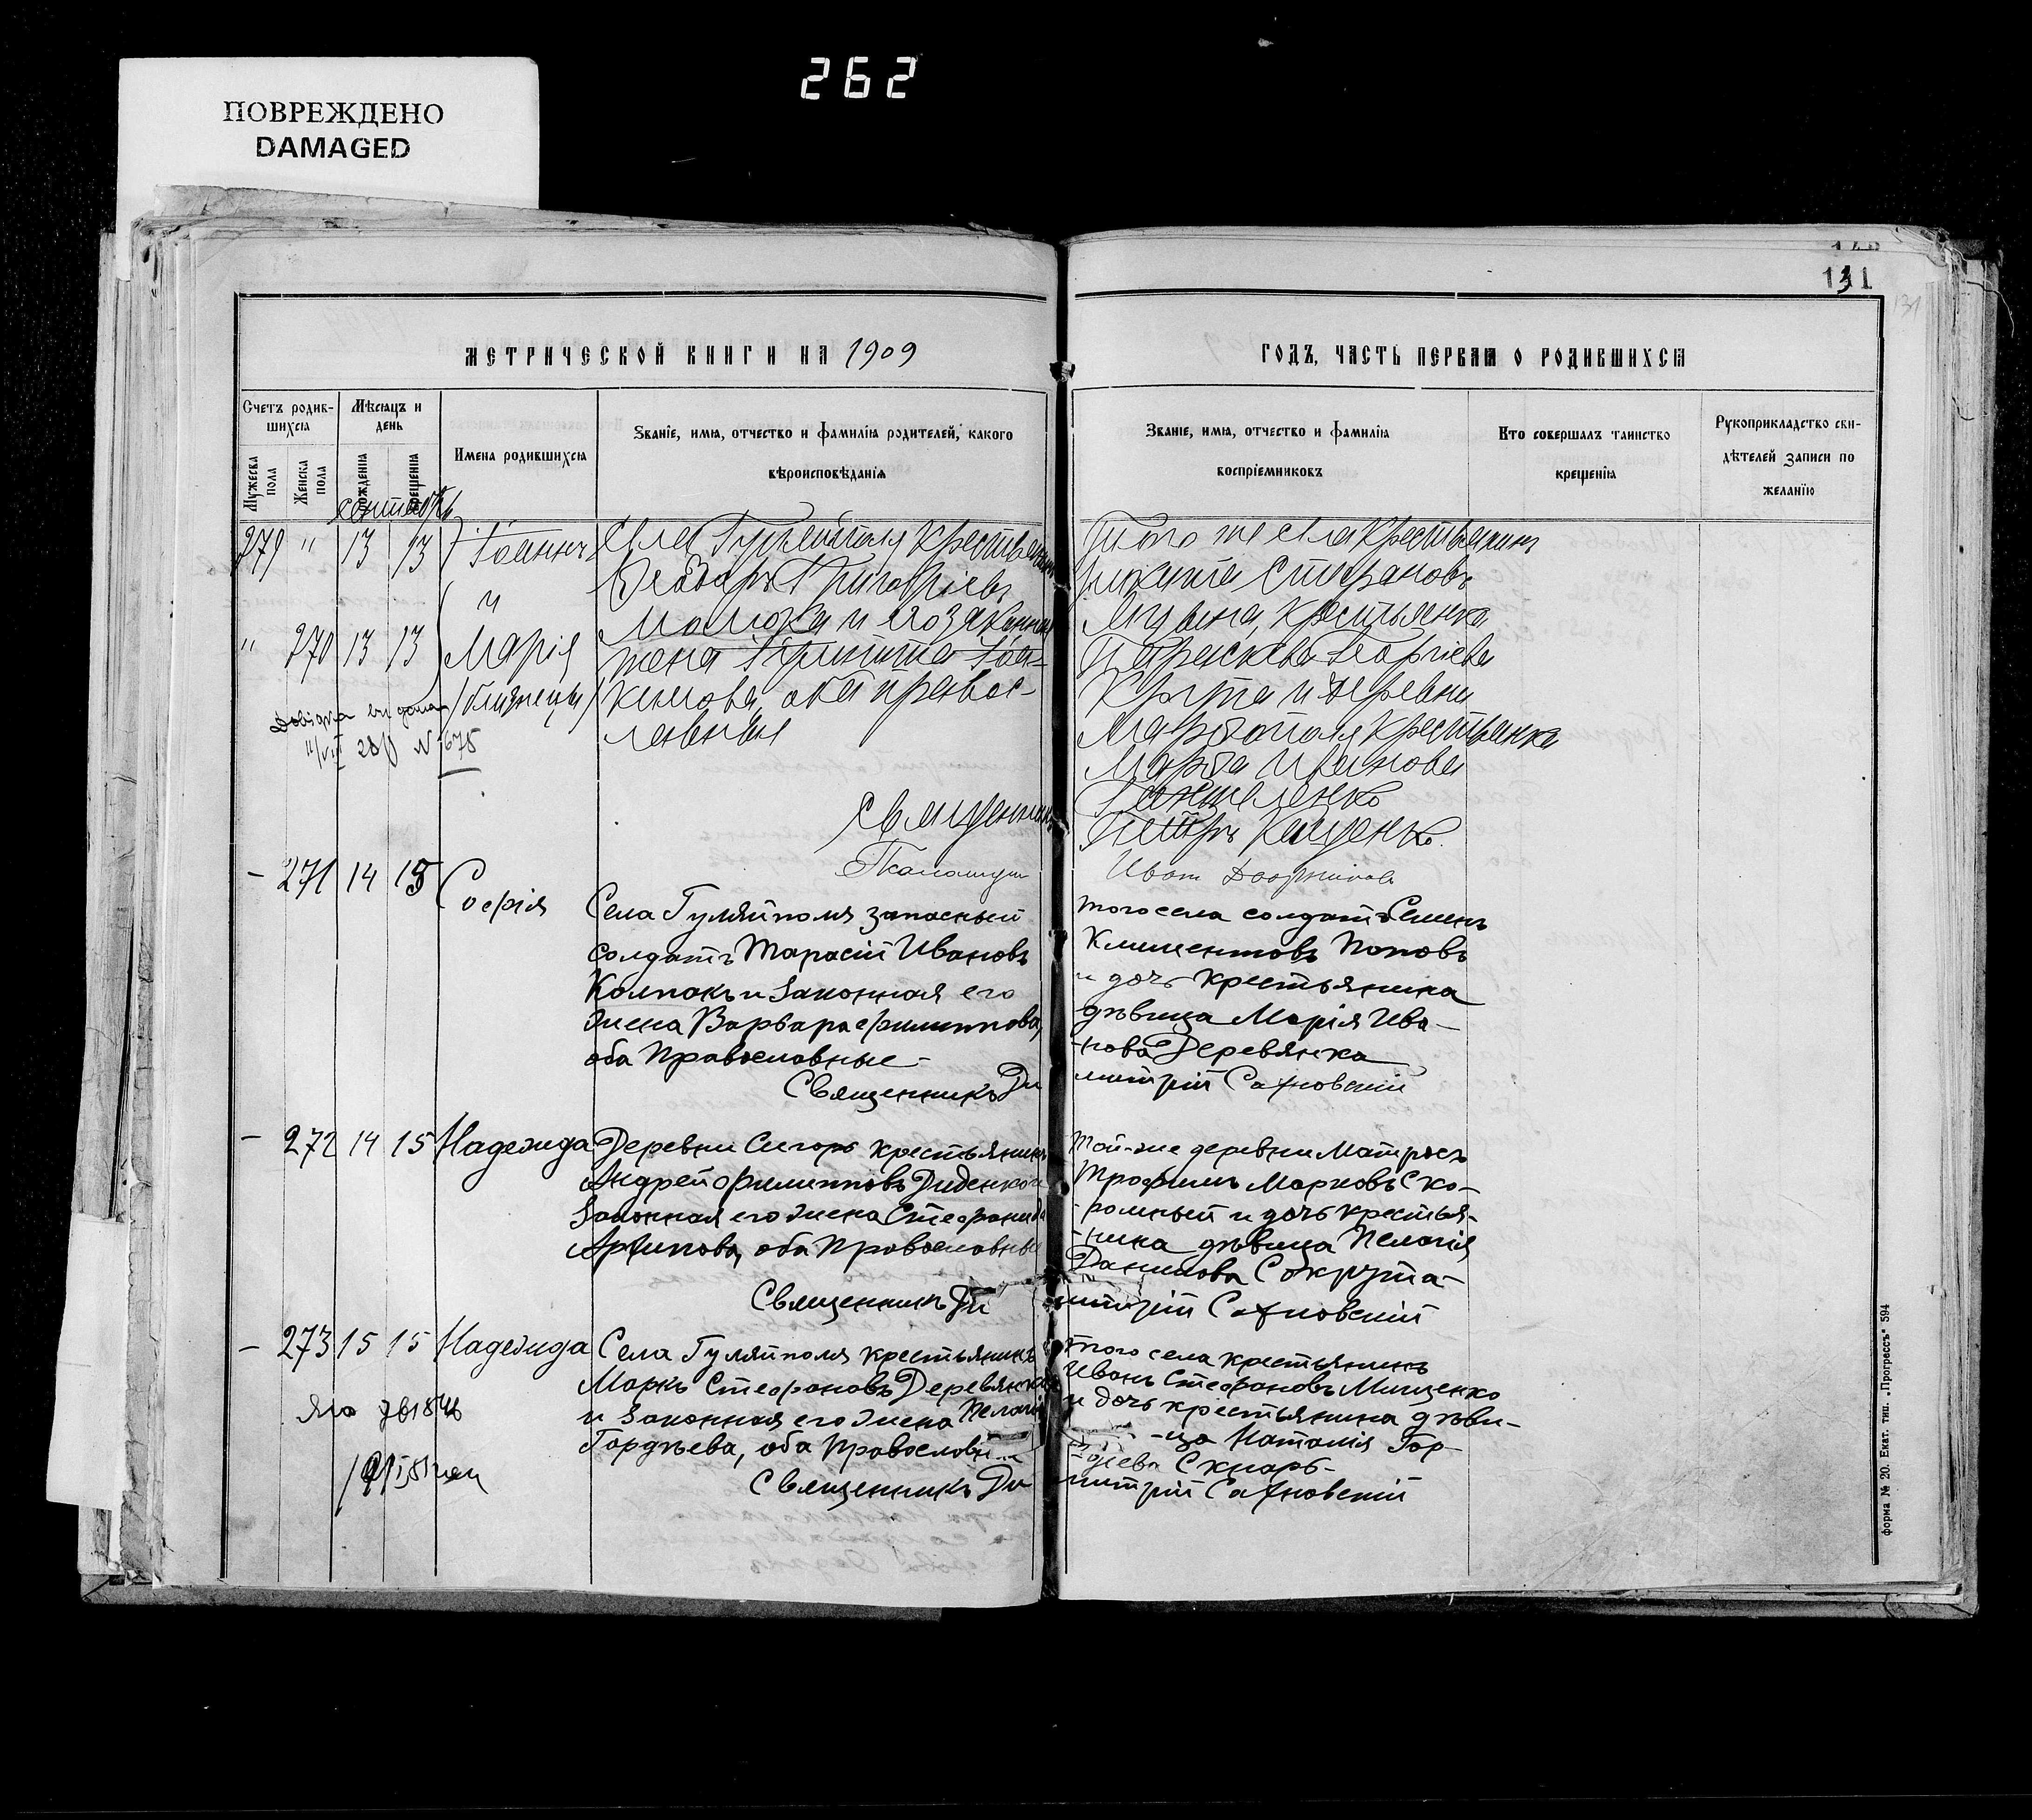 262
ПОВРЕЖДЕНО
DAMAGED
131
131
МЕТРИЧЕСКОЙ КНИГИ НА 1909
ГОДЪ, ЧАСТЬ ПЕРВАЯ О РОДИВШИХСЯ
Счетъ родив-
шихся
Мужеска пола
Женска пола
Мѣсяцъ и
день
рожденія
крещенія
Имена родившихся
Званіе, имя, отчество и фамилія родителей, какого
вѣроисповѣданія
Званіе, имя, отчество и фамилія
воспріемниковъ
Кто совершалъ таинство
крещенія
Рукоприкладство сви-
дѣтелей записи по
желанію
279 " 13 13 Іоаннъ
и
" 270 13 13 Марія
/близнецы/
Села Гуляйполя Крестьянинъ
Ѳеодоръ Григоріевъ
и его законная
жена
кимова, оба правос-
лавныя
Священникъ
Того же села Крестьянинъ
Никита Стефановъ
Крестьянка
Параскева Георгіева
и деревни
Марфополя Крестьянка
Марфа Иванова
Пантеленко
Петръ Кащенко.
Иван
№ 675
- 271 14 15 Софія
Села Гуляйполя запасный
солдатъ Тарасій Ивановъ
Колпакъ и законная его
жена Варвара Филиппова,
оба Православные -
Священникъ Ди
того села солдатъ Семенъ
Климентовъ Поповъ
и дочь крестьянина
дѣвица Марія Ива-
-нова Деревянка
митрій Сахновскій
- 272 14 15 Надежда
Деревни крестьянинъ
Андрей Филипповъ Диденко и
законная его жена Стефанида
Архипова, оба Православные
Священникъ Ди
той-же деревни Матросъ
Трофимъ Марковъ Ско-
-ромный и дочь крестья-
-нина дѣвица Пелагія
Данилова Сокрута-
митрій Сахновскій
- 273 15 15 Надежда
Села Гуляйполя крестьянинъ
Маркъ Стефановъ Деревянка
и законная его жена Пелагія
Гордѣева, оба Православны
Священникъ Ди
того села крестьянинъ
Иванъ Стефановъ Мищенко
и дочь крестьянина дѣви-
-ца Наталія Гор-
-діева Скнарь-
митрій Сахновскій
форма № 20. Екат. тип. „Прогрессъ" 594